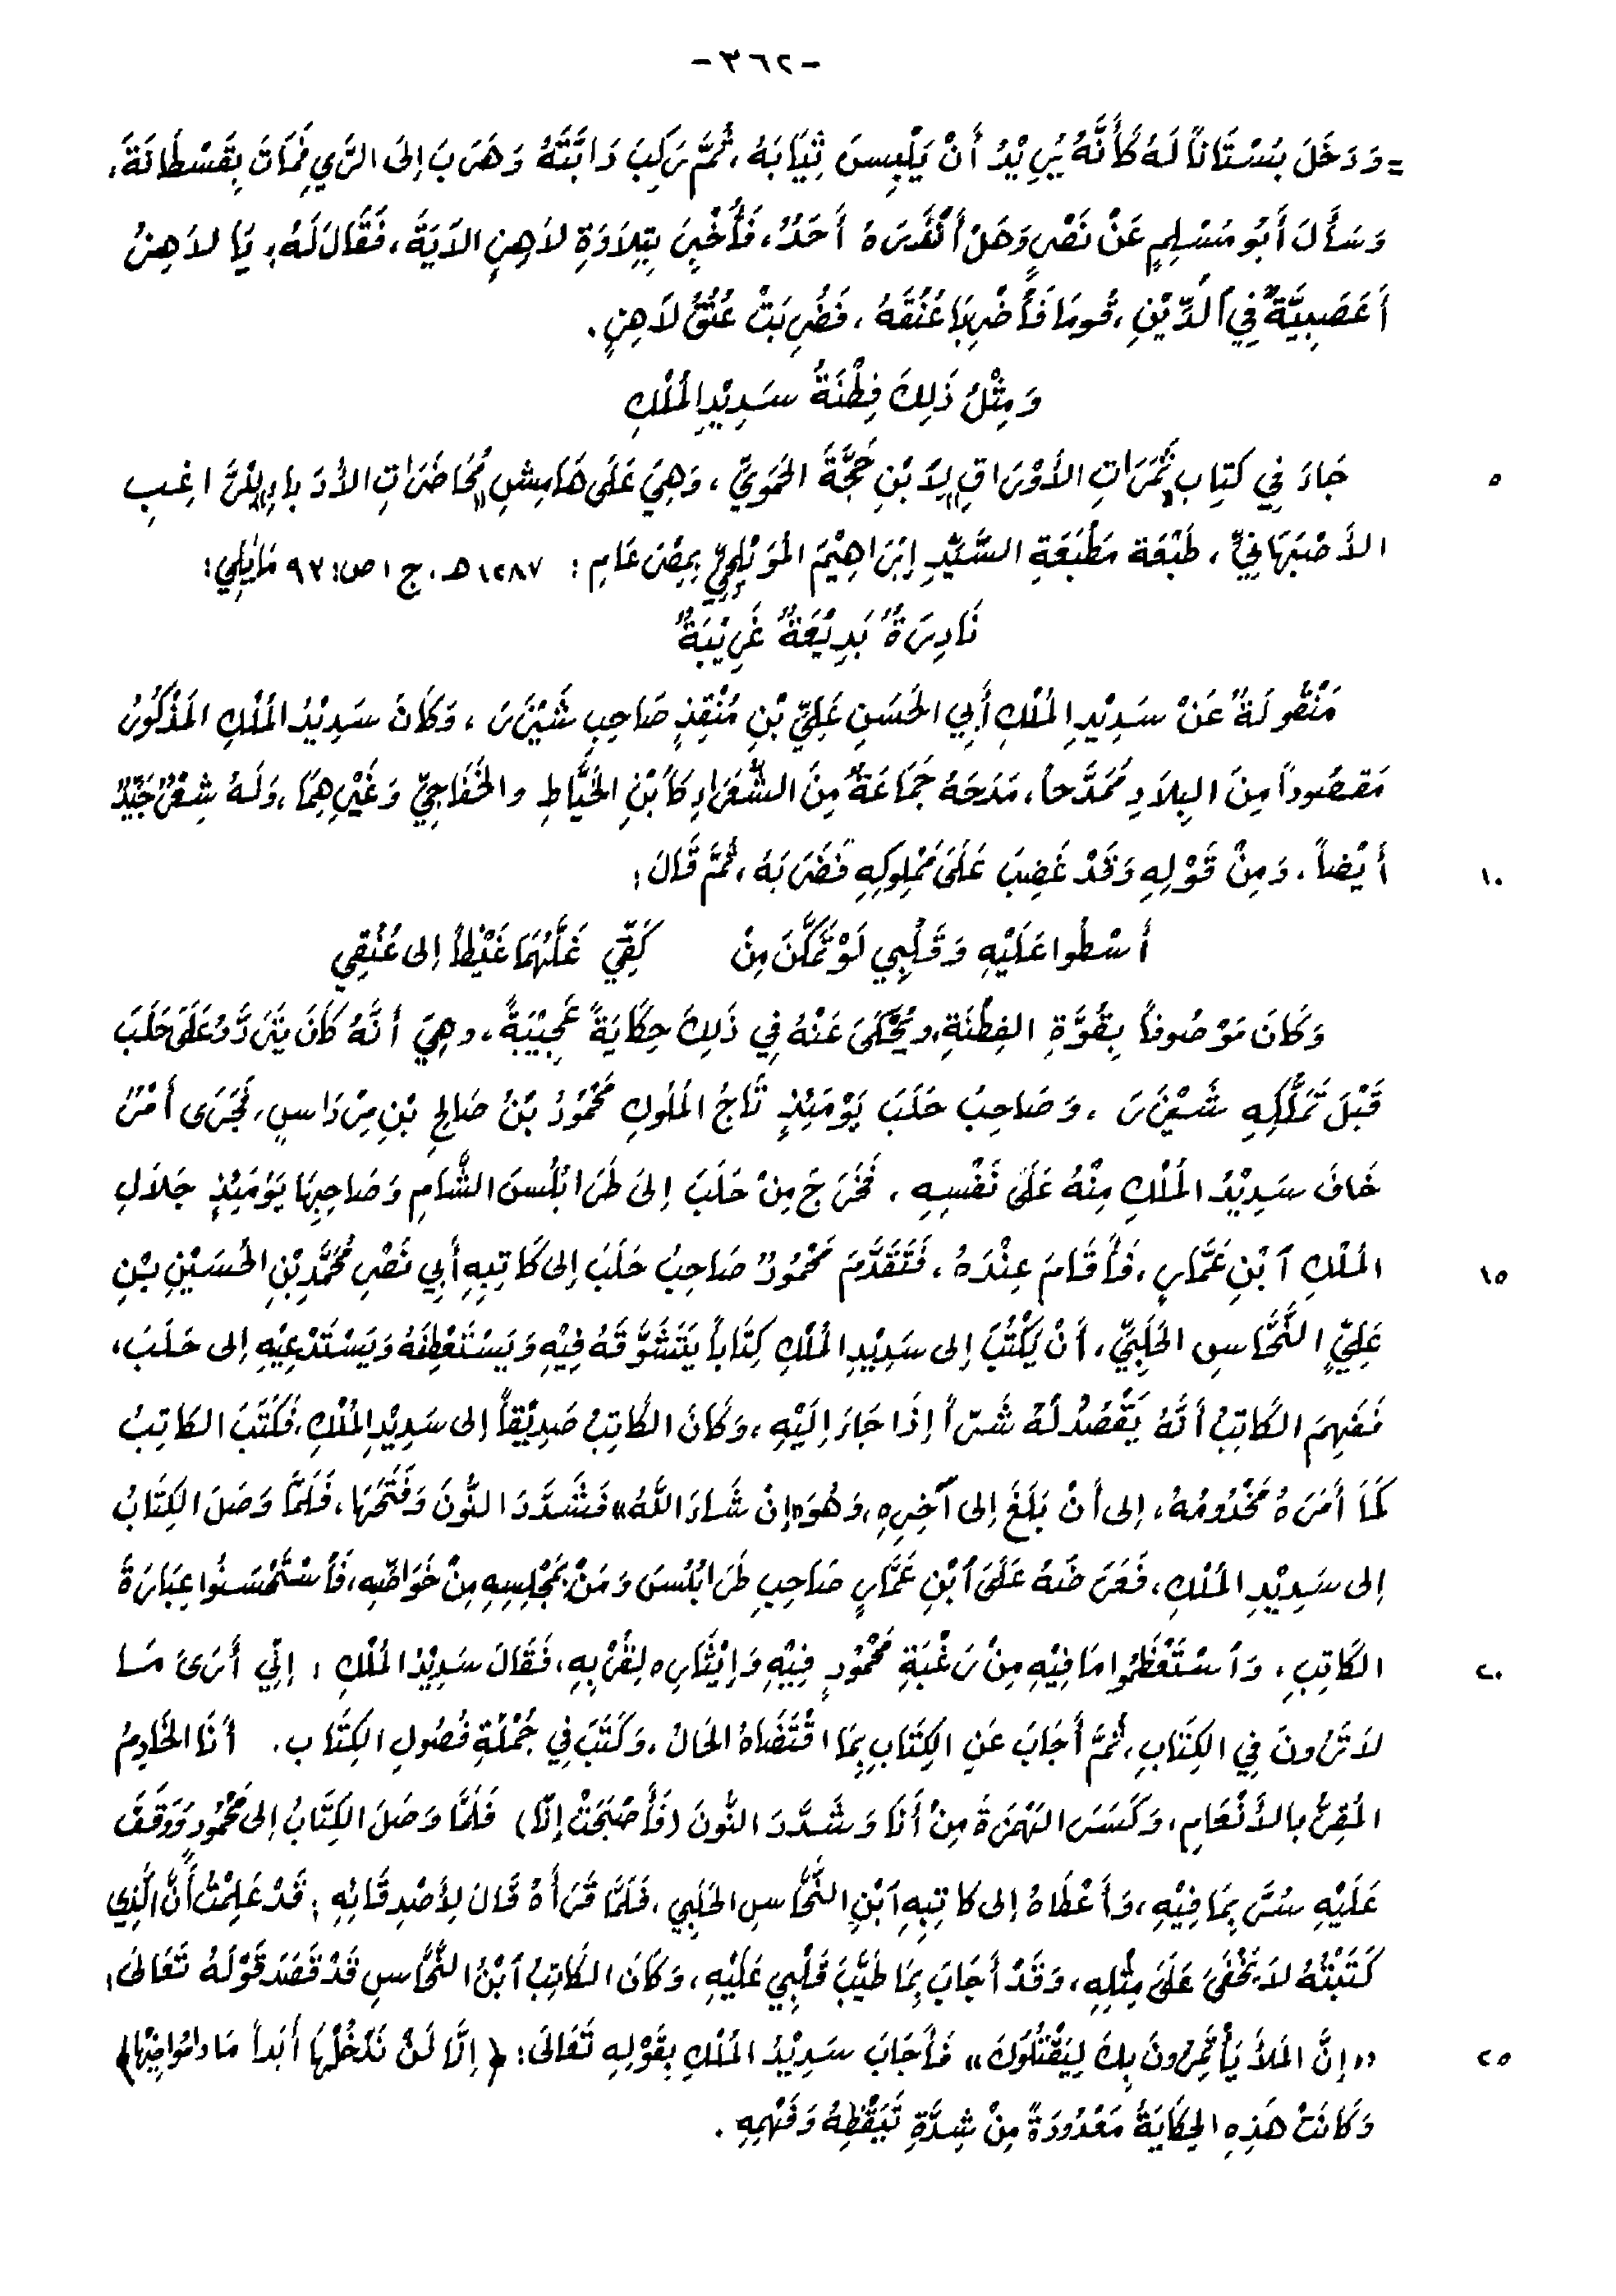 -٣٦٢-
= وَدَخَلَ بُسْتَاناً لَهُ كَأَنَّهُ يُرِيْدُ أَنْ يَلْبِسَ ثِيَابَهُ، ثُمَّ رَكِبَ دَابَّتَهُ وَهَرَبَ إِلىَ الرَّيِ فَمَاتَ بِقَسْطَانَةَ،
وَسَأَلَ أَبُو مُسْلِمٍ عَنْ نَصْرٍ وَهَلْ أَنْذَرَهُ أَحَدٌ، فَأُخْبِرَ بِتِلاَوَةِ لاَهِزٍ الآيَةَ، فَقَالَ لَهُ: يَا لاَهِزُ
أَعَصَبِيَّةٌ فِي ٱلدِّيْنِ، قُومَا فَأَضْرِبَا عُنُقَهُ، فَضُرِبَتْ عُنُقُ لاَهِزٍ.
وَمِثْلُ ذَلِكَ فِطْنَةُ سَدِيْدِ المُلْكِ
٥ جَاءَ فِي كِتَابِ "ثَمَرَاتِ الأَوْرَاقِ" لِابْنِ حَجَّةَ الحَمَوِيِّ، وَهِيَ عَلَى هَامِشِ "مُحَاضَرَاتِ الأُدَبَاءِ" لِلرَّاغِبِ
الأَصْبَهَانِيِّ، طَبْعَة مَطْبَعَةِ السَّيِّدِ إِبْرَاهِيْمَ المُوَيْلِحِيِّ بِمِصْرَ عَامِ: ١٢٨٧ هـ. ج ١ ص: ٩٣ مَايَلِي:
نَادِرَةٌ بَدِيْعَةٌ غَرِيْبَةٌ
مَنْقُولَةٌ عَنْ سَدِيْدِ المُلْكِ أَبِي الحَسَنِ عَلِيِّ بْنِ مُنْقِذٍ صَاحِبِ شَيْزَرَ، وَكَانَ سَدِيْدُ المُلْكِ المَذْكُورُ
مَقصُوداً مِنَ البِلاَدِ مُمَدَّحاً، مَدَحَهُ جَمَاعَةٌ مِنَ الشُّعَرَاءِ كَابْنِ الخَيَّاطِ والخَفَاجِيِّ وَغَيْرِهِمَا، وَلَهُ شِعْرٌ جَيِّدٌ
١٠ أَيْضاً. وَمِنْ قَوْلِهِ وَقَدْ غَضِبَ عَلَىَ مَمْلُوكِهِ فَضَرَبَهُ، ثُمَّ قَالَ:
أَسْطُوا عَلَيْهِ وَقَلْبِي لَوْ تَمَكَّنَ مِنْ كَفِّيَّ غَلَّهُمَا غَيْظاً إِلى عُنُقِي
وَكَانَ مَوْصُوفاً بِقُوَّةِ الفِطْنَةِ، ويُحْكَىَ عَنْهُ فِي ذَلِكَ حِكَايَةً عَجِيْبَةً، وهِيَ أَنَّهُ كَانَ يَتَرَدَّدُ عَلَىَ حَلَبَ
قَبْلَ تَمَلُّكِهِ شَيْزَرَ، وَصَاحِبُ حَلَبَ يَوْمَئِذٍ تَاجُ المُلُوكِ مَحْمُوُدُ بْنُ صَالِحِ بْنِ مِرْدَاسٍ، فَجَرَى أَمْرٌ
خَافَ سَدِيْدُ المُلْكِ مِنْهُ عَلَىَ نَفْسِهِ، فَخَرَجَ مِنْ حَلَبَ إِلىَ طَرَابُلُسَ الشَّامِ وَصَاحِبِهَا يَوْمَئِذٍ جَلاَلِ
١٥ المُلْكِ ٱبْنِ عَمَّارٍ، فَأَقَامَ عِنْدَهُ، فَتَقَدَّمَ مَحْمُوُدٌ صَاحِبُ حَلَبَ إِلى كَاتِبِهِ أَبِي نَصْرِ مُحَمَّدِ بْنِ الحُسَيْنِ بْنِ
عَلِيٍّ النَّحَّاسِ الحَلَبِيِّ، أَنْ يَكْتُبَ إِلى سَدِيْدِ المُلْكِ كِتَاباً يَتَشَوَّقَهُ فِيْهِ وَيَسْتَعْطِفَهُ وَيَسْتَدْعِيْهِ إِلى حَلَبَ،
فَفَهِمَ الكَاتِبُ أَنَّهُ يَقْصُدُ لَهُ شَرّاً إِذَا جَاءَ إِلَيْهِ، وَكَانَ الكَاتِبُ صَدِيْقاً إِلى سَدِيْدِ المُلْكِ، فَكَتَبَ الكَاتِبُ
كَمَا أَمَرَهُ مَخْدُومُهُ، إِلى أَنْ بَلَغَ إِلى آخِرِهِ، وَهُوَ «إِنْ شَاءَ اللَّهُ» فَشَدَّدَ النُّونَ وَفَتَحَهَا، فَلَمَّا وَصَلَ الكِتَابُ
إِلى سَدِيْدِ المُلْكِ، فَعَرَضَهُ عَلَىَ ٱبْنِ عَمَّارٍ صَاحِبِ طَرَابُلُسَ وَمَنْ بِمَجْلِسِهِ مِنْ خَوَاصِّهِ، فَٱسْتَحْسَنُوا عِبَارَةَ
٢٠ الكَاتِبِ، وَٱسْتَعْظَمُوا مَا فِيْهِ مِنْ رَغْبَةِ مَحْمُوُدٍ فِيْهِ وَإِيْثَارِهِ لِقُرْبِهِ، فَقَالَ سَدِيْدُ المُلْكِ: إِنِّي أَرَىَ مَا
لاَتَرَوْنَ فِي الكِتَابِ، ثُمَّ أَجَابَ عَنِ الكِتَابِ بِمَا اقْتَضَاهُ الحَالُ، وَكَتَبَ فِي جُمْلَةِ فُصُولِ الكِتَابِ. أَنَا الخَادِمُ
المُقِرُّ بِالأَنْعَامِ، وَكَسَرَ الهَمْزَةَ مِنْ أَنَا وَشَدَّدَ النُّونَ (فَأَصْبَحَتْ إِنَّا) فَلَمَّا وَصَلَ الكِتَابُ إِلى مَحْمُودٍ وَوَقَفَ
عَلَيْهِ سُرَّ بِمَا فِيْهِ، وَأَعْطَاهُ إِلى كَاتِبِهِ ٱبْنِ النَّحَّاسِ الحَلَبِي، فَلَمَّا قَرَأَهُ قَالَ لِأَصْدِقَائِهِ: قَدْ عَلِمْتُ أَنَّ الَّذِي
كَتَبْتُهُ لاَ يَخْفَىَ عَلَىَ مِثْلِهِ، وَقَدْ أَجَابَ بِمَا طَيَّبَ قَلْبِي عَلَيْهِ، وَكَانَ الكَاتِبُ ٱبْنُ النَّحَّاسِ قَدْ قَصَدَ قَوْلَهُ تَعَالىَ:
٢٥ «إِنَّ المَلأَ يَأْتَمِرُونَ بِكَ لِيَقْتُلُوكَ» فَأَجَابَ سَدِيْدُ المُلْكِ بِقَوْلِهِ تَعَالىَ: ﴿إِنَّا لَنْ نَدْخُلَهَا أَبَداً مَا دَامُوا فِيْهَا﴾
وَكَانَتْ هَذِهِ الحِكَايَةُ مَعْدُودَةً مِنْ شِدَّةِ تَيَقْظِهُ وَفَهْمِهِ.